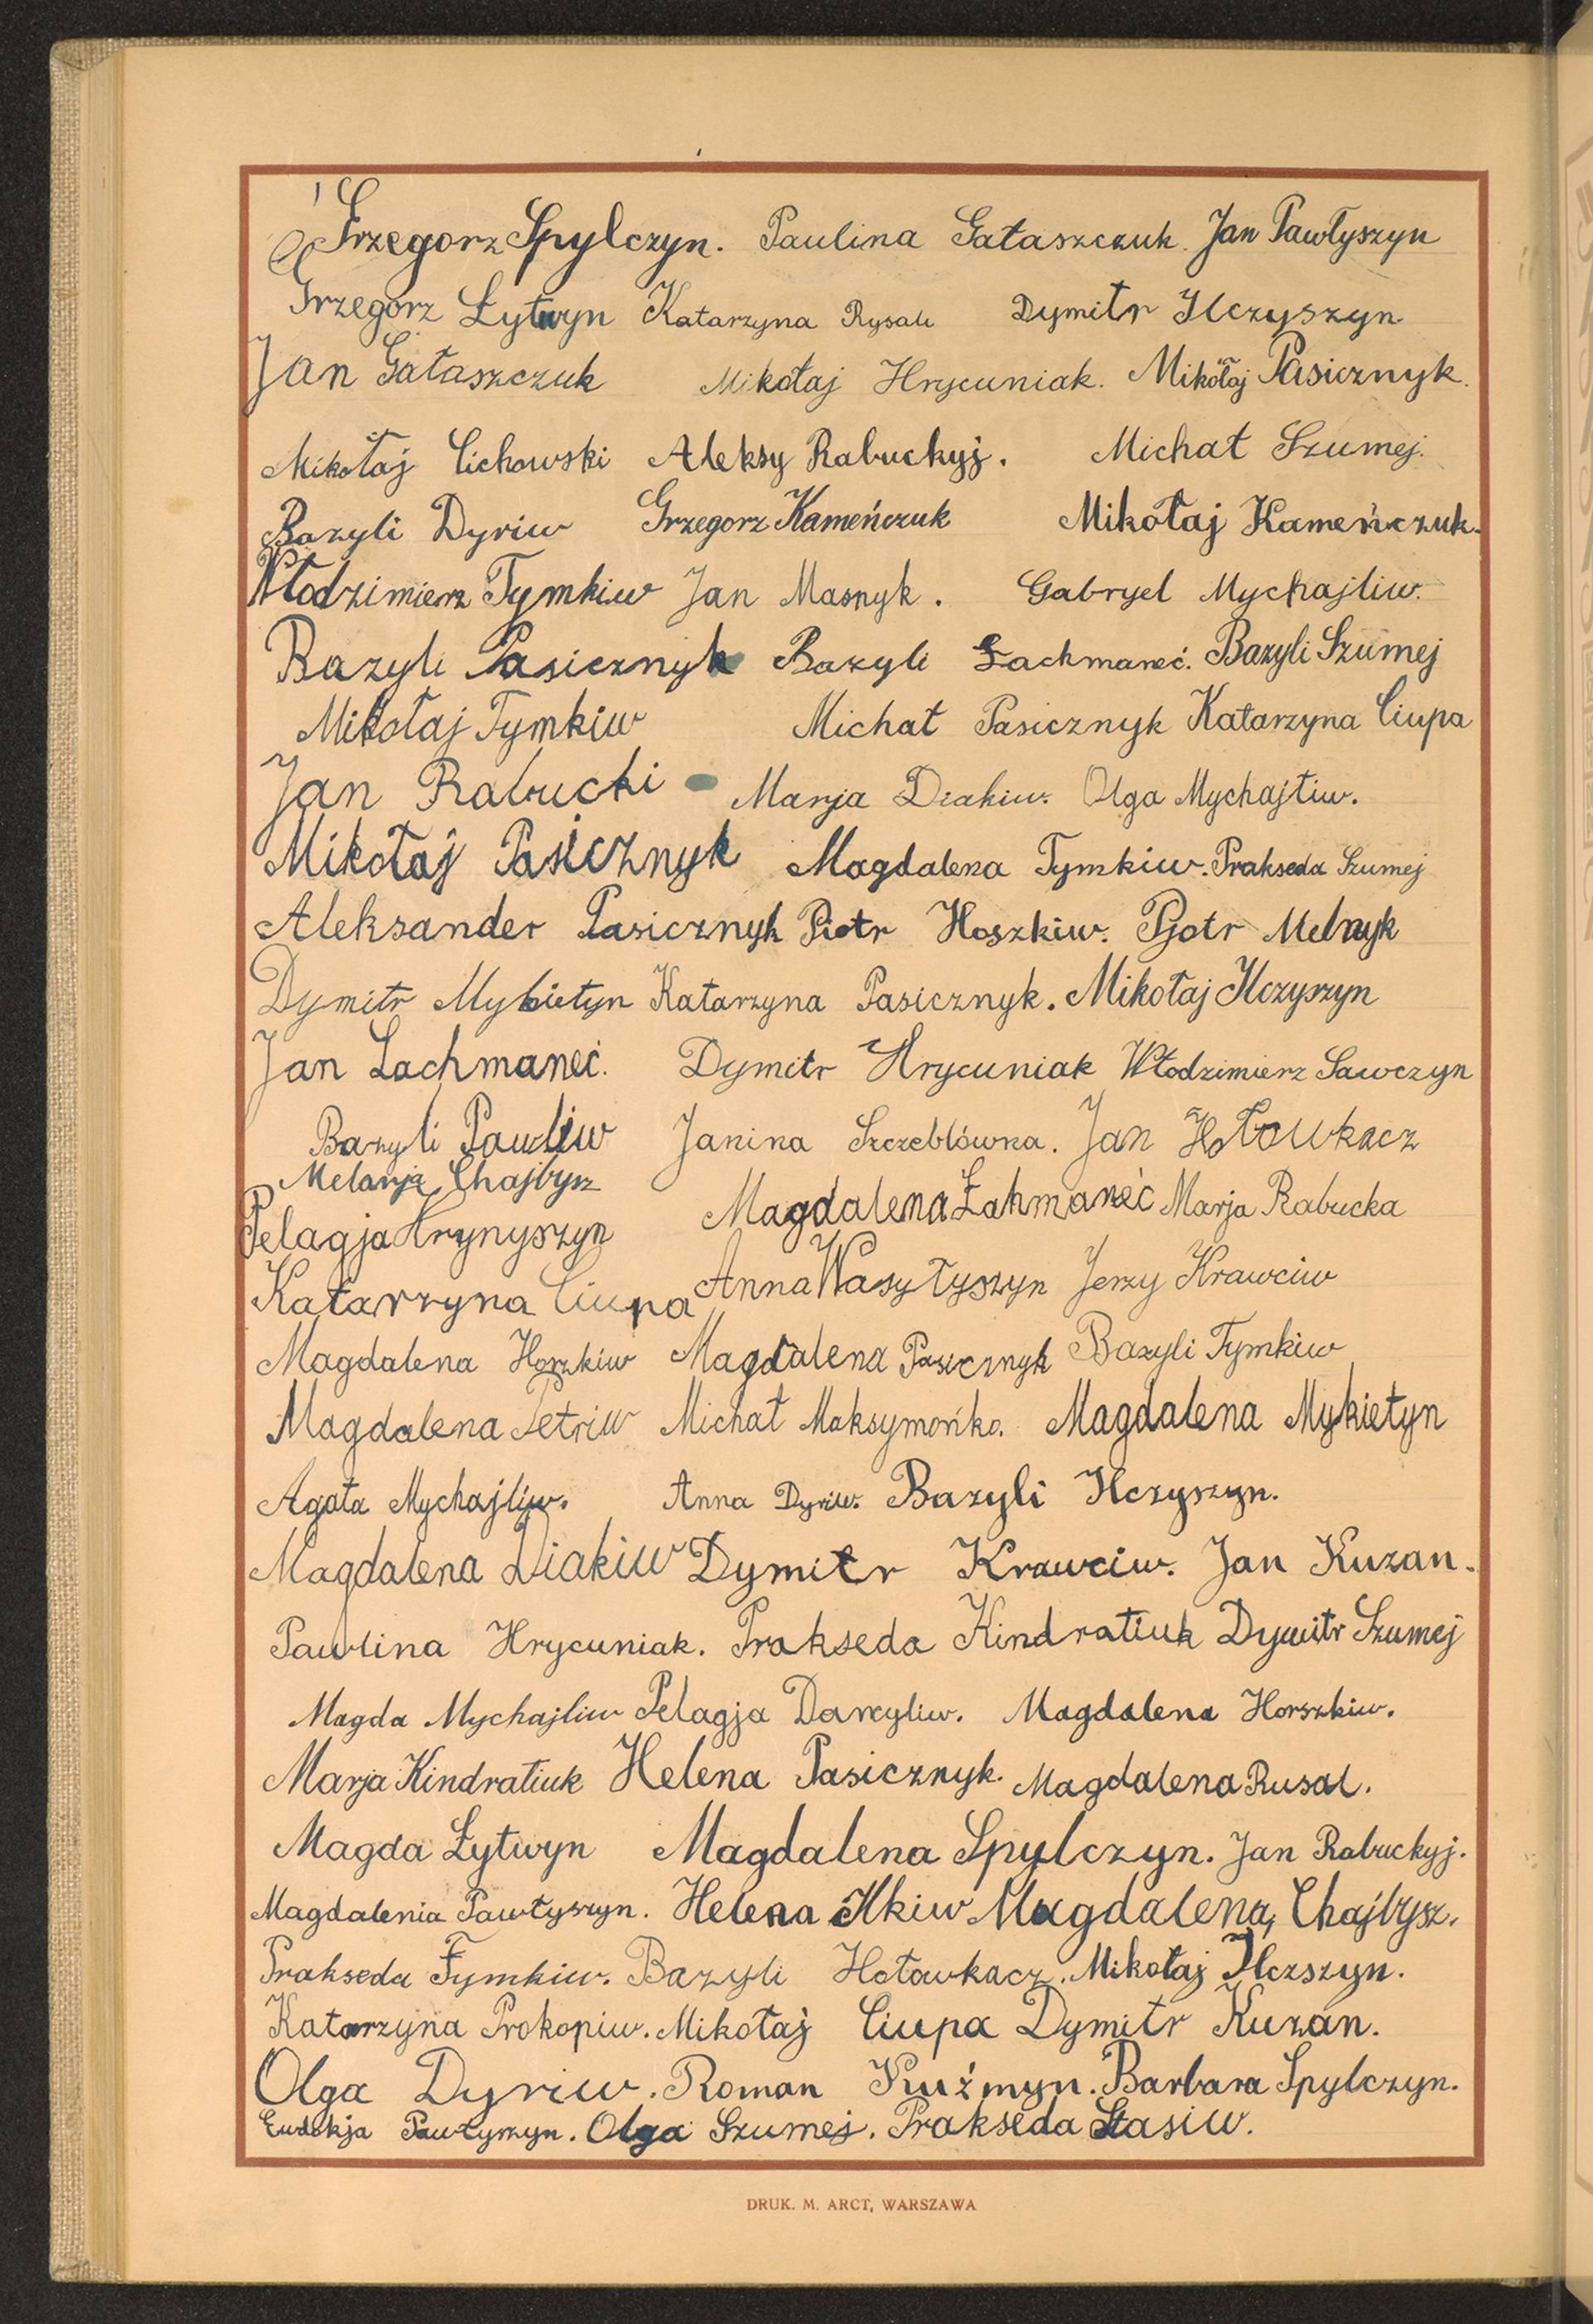 Grzegorz Spylczyn. Paulina Gałaszczuk. Jan Pawłyszyn
Grzegorz Łytwyn Katarzyna Rysak Dymitr Ilczyszyn
Jan Gałaszczuk Mikołaj Hrycuniak. Mikołaj Pasicznyk.
Mikołaj Cichowski Aleksy Rabuckyj. Michał Szumej.
Bazyli Dyriw Grzegorz Kameńczuk Mikołaj Kameńczuk.
Włodzimierz Tymkiw Jan Masnyk. Gabryel Mychajliw.
Bazyli Pasicznyk Bazyli Łachmaneć. Bazyli Szumej
Mikołaj Tymkiw Michał Pasicznyk Katarzyna Ciupa
Jan Rabucki Marja Diakiw. Olga Mychajliw.
Mikołaj Pasicznyk Magdalena Tymkiw. Prakseda Szumej
Aleksander Pasicznyk Piotr Hoszkiw. Pjotr Melnyk
Dymitr Mykietyn Katarzyna Pasicznyk. Mikołaj Ilczyszyn
Jan Lachmaneć. Dymitr Hrycuniak Włodzimierz Sawczyn
Bazyli Pawliw Janina Szczeblówna. Jan Hołowkacz
Melanja Chajbysz
Magdalena Łahmaneć Marja Rabucka
Pelagja Hrynyszyn
Katarzyna Ciupa Anna Wasyłyszyn Jerzy Krawciw
Magdalena Horszkiw Magdalena Pasicznyk Bazyli Tymkiw
Magdalena Petriw Michał Maksymońko. Magdalena Mykietyn
Agata Mychajliw. Anna Dyriw. Bazyli Ilczyszyn.
Magdalena Diakiw Dymitr Krawciw. Jan Kuzan.
Pawlina Hrycuniak. Prakseda Kindratiuk Dymitr Szumej
Magda Mychajliw Pelagja Danyliw. Magdalena Horszkiw.
Marja Kindratiuk Helena Pasicznyk. Magdalena Rusal.
Magda Łytwyn Magdalena Spylczyn. Jan Rabuckyj.
Magdalenia Pawłyszyn. Helena Ilkiw Magdalena Chajbysz.
Prakseda Tymkiw. Bazyli Hołowkacz. Mikołaj Ilczszyn.
Katarzyna Prokopiw. Mikołaj Ciupa Dymitr Kuzan.
Olga Dyriw. Roman Kuźmyn. Barbara Spylczyn.
Eudokja Pawłyszyn. Olga Szumej. Prakseda Stasiw.
DRUK. M. ARCT, WARSZAWA